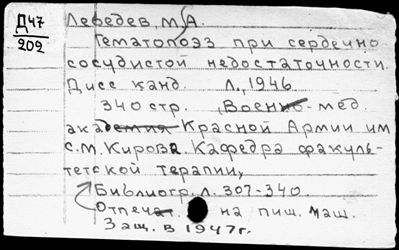 Д47
209
Лебедев, М.А.
Гематопоэз при сердечно
сосудистой недостаточности.
Дисс канд. Л., 1946
340 стр. , Военно-мед.
академия Красной Армии им
С.М. Кирова. Кафедра факуль-
тетской терапии,
Библиогр. л. 307-340.
Отпечат. на пиш. маш.
Защ. в 1947г.